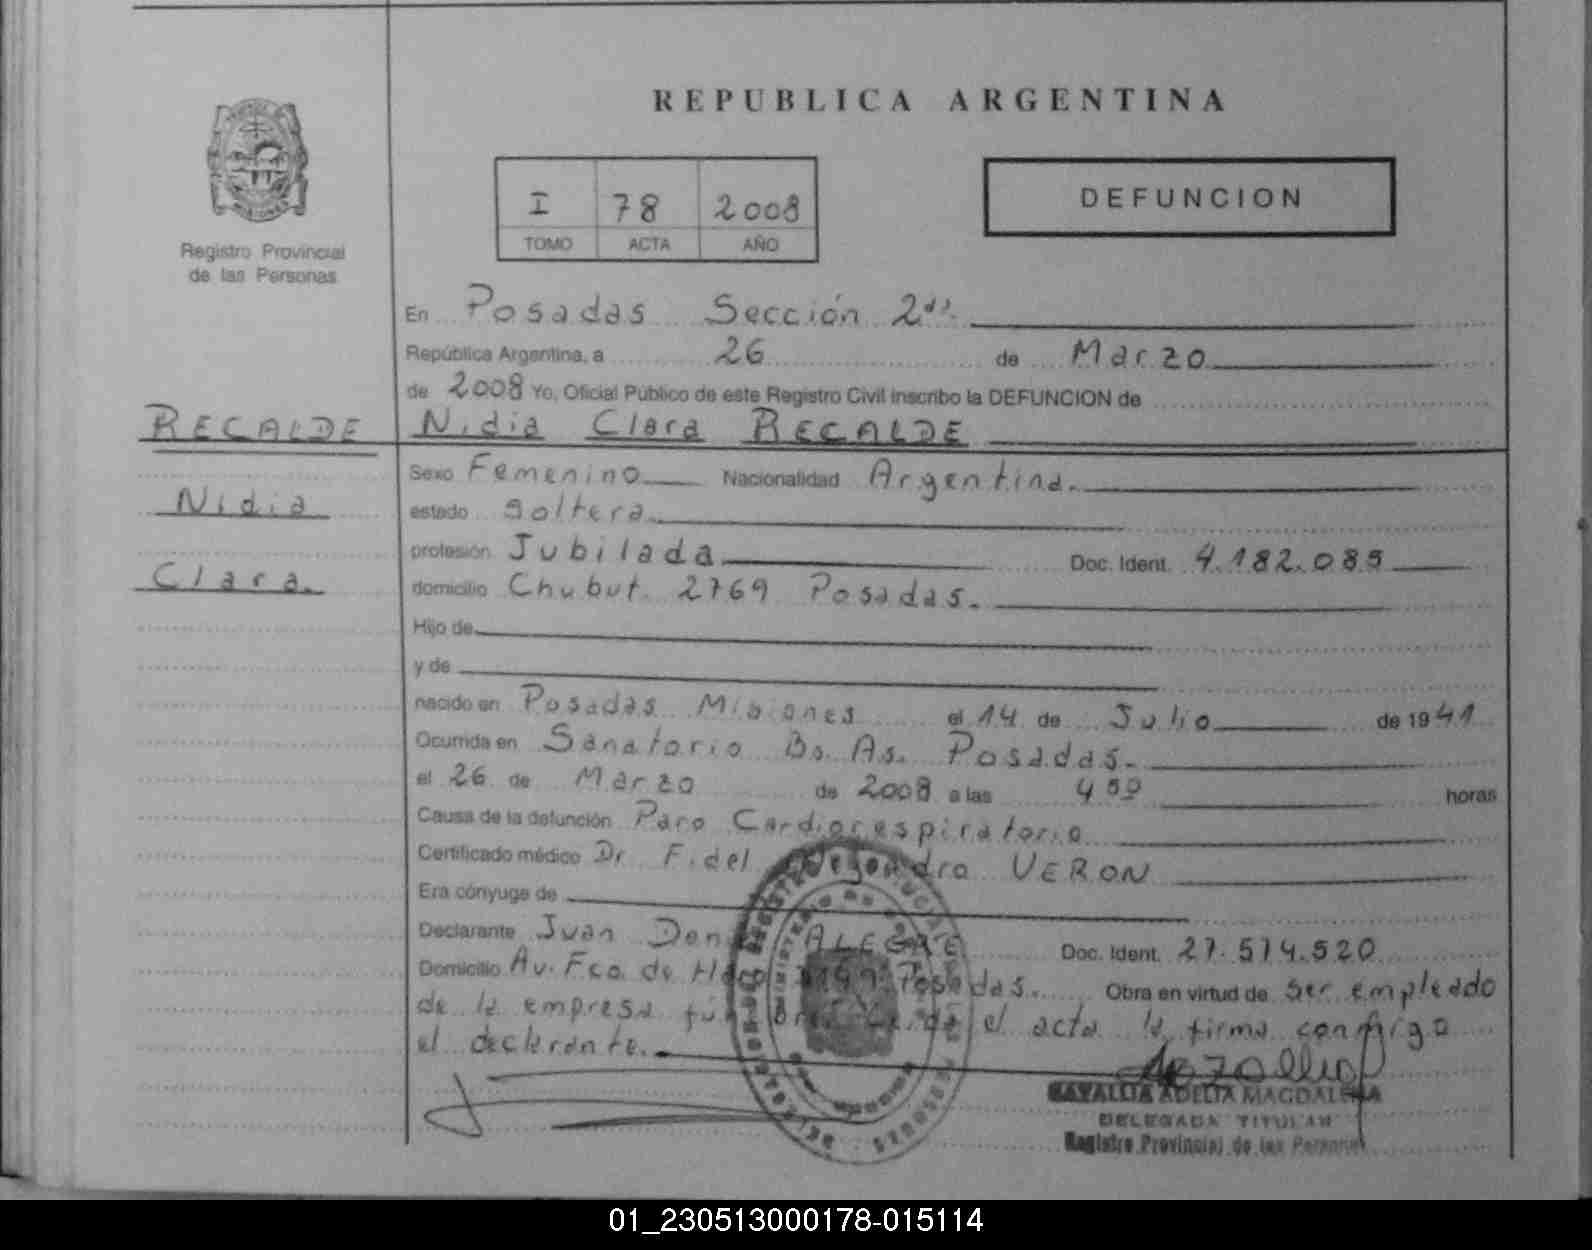 REPUBLICA ARGENTINA
DEFUNCION
I 78 2008
TOMO ACTA AÑO
Registro Provincial
de las Personas
RECALDE
Nidia
Clara.
En Posadas Sección 2da.
República Argentina, a 26 de Marzo
de 2008 Yo, Oficial Público de este Registro Civil inscribo la DEFUNCION de
Nidia Clara RECALDE
Sexo Femenino Nacionalidad Argentina.
estado soltera
profesión Jubilada Doc. Ident. 4.182.089
domicilio Chubut 2769 Posadas.
Hijo de
y de
nacido en Posadas Misiones el 14 de Julio de 1941
Ocurrida en Sanatorio Bs. As. Posadas.
el 26 de Marzo de 2008 a las 4 50 horas
Causa de la defunción Paro Cardiorespiratorio
Certificado médico Dr. Fidel Alejandro VERON
Era cónyuge de
Declarante Juan ALEGRE Doc. Ident. 27.514.520
Domicilio Av. Fco. de Posadas. Obra en virtud de ser empleado
de la empresa el acta la firma conmigo
el declarante.
ADELIA MAGDALENA
DELEGADA TITULAR
Registro Provincial de las Personas
01_230513000178-015114